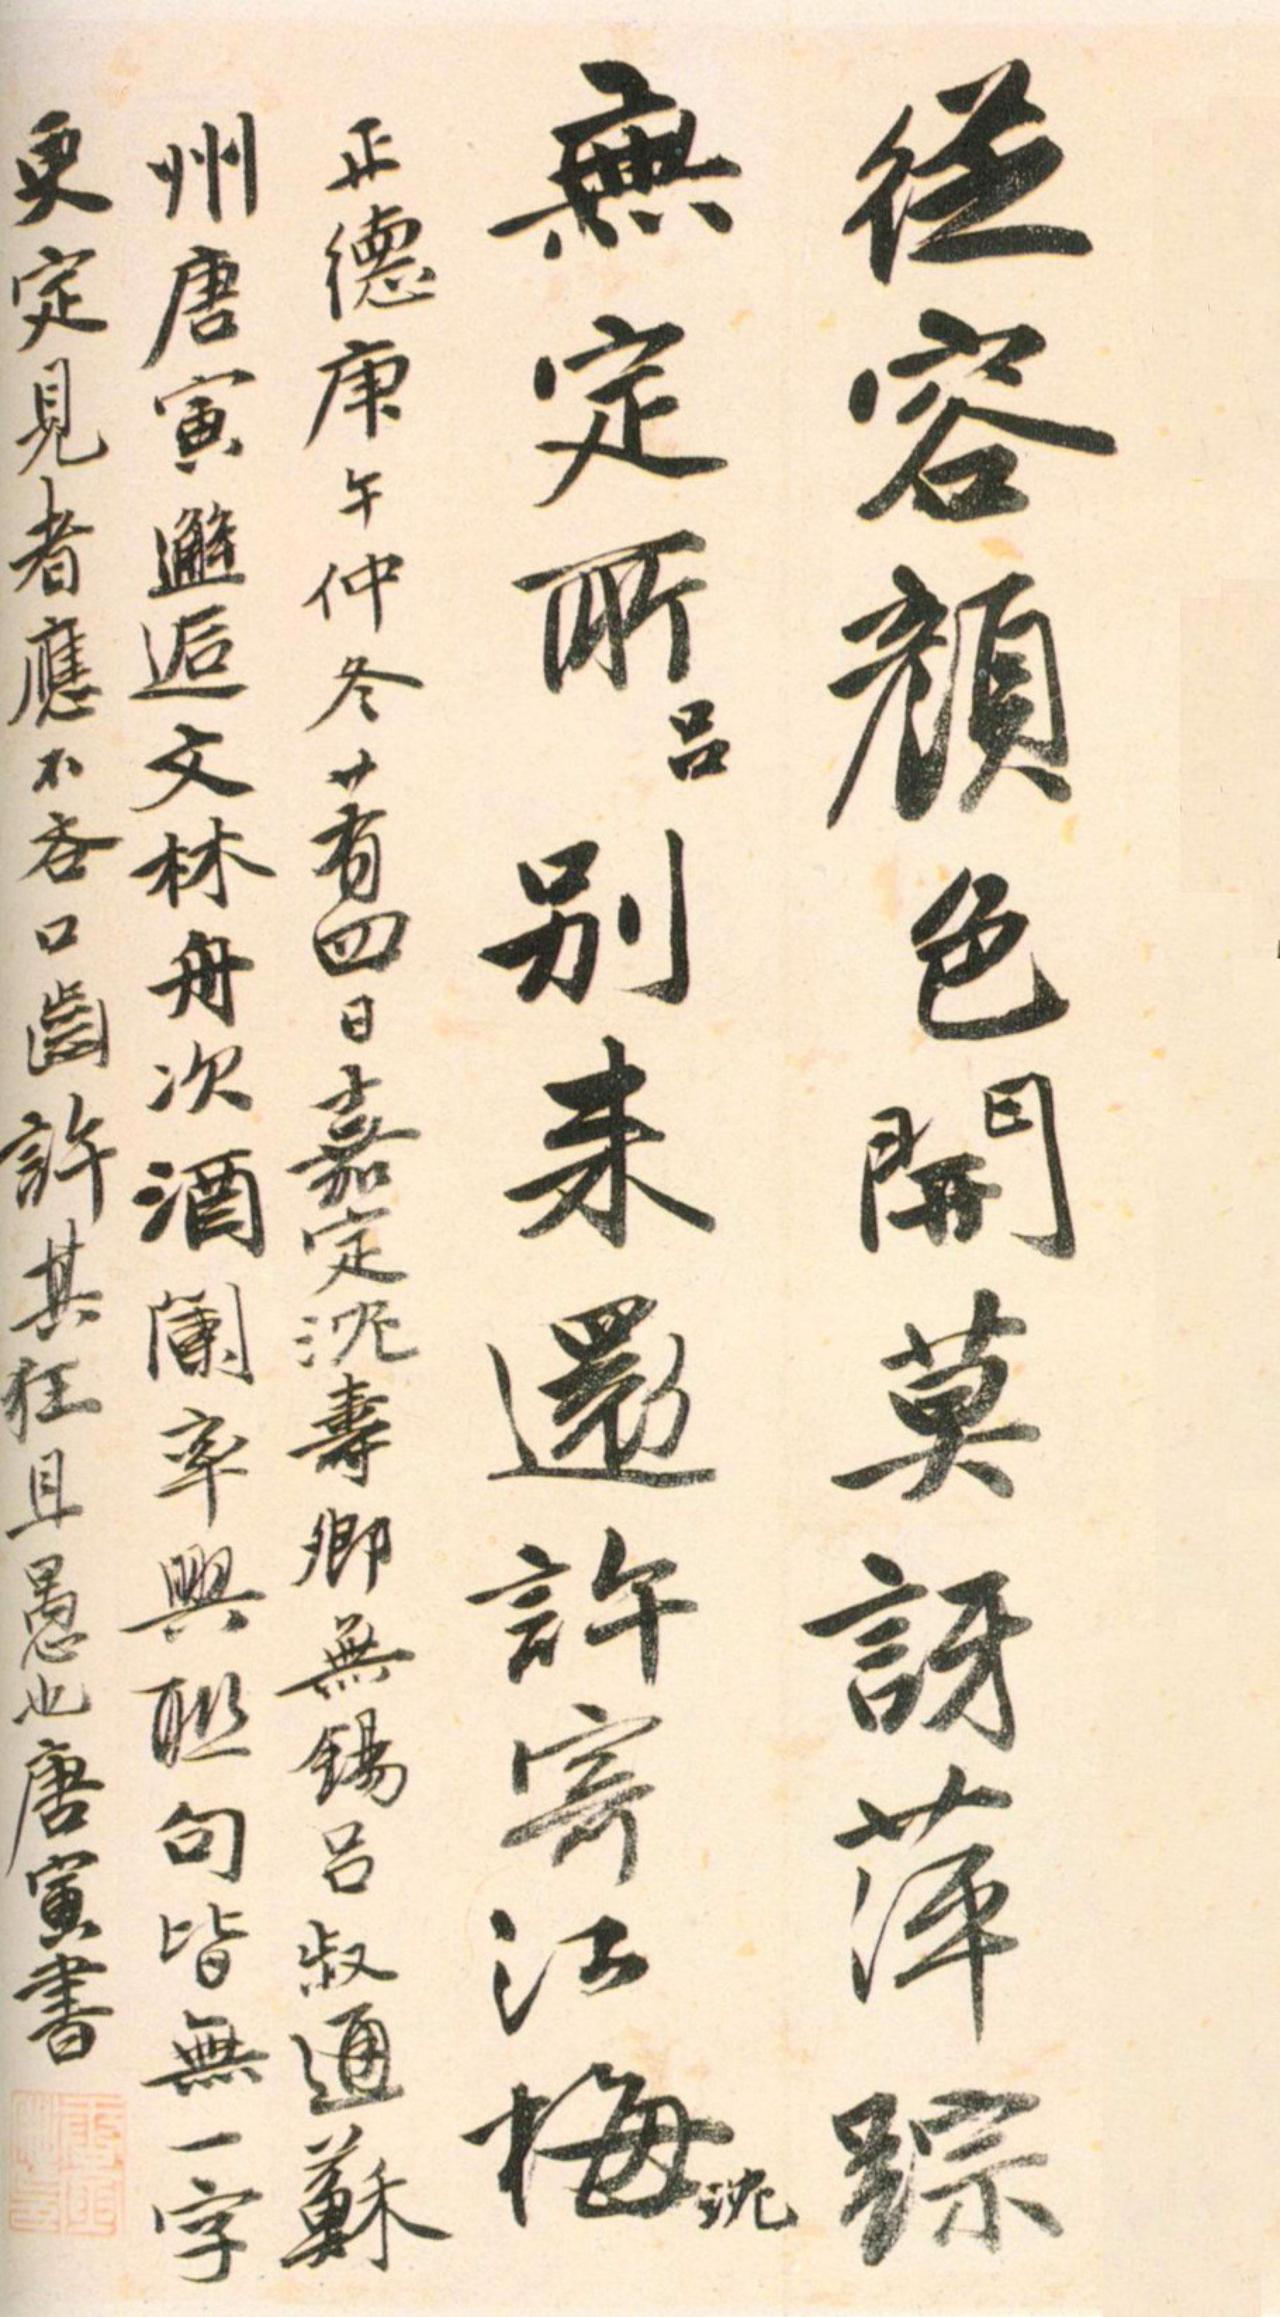 從容顏色開莫訝萍踪
無定所呂別來還許寄江梅沈
正德庚午仲冬廿有四日嘉定沈壽卿無錫呂叔通蘇
州唐寅邂逅文林舟次酒闌率興聯句皆無一字
更定見者應不吝口齒許其狂且愚也唐寅書